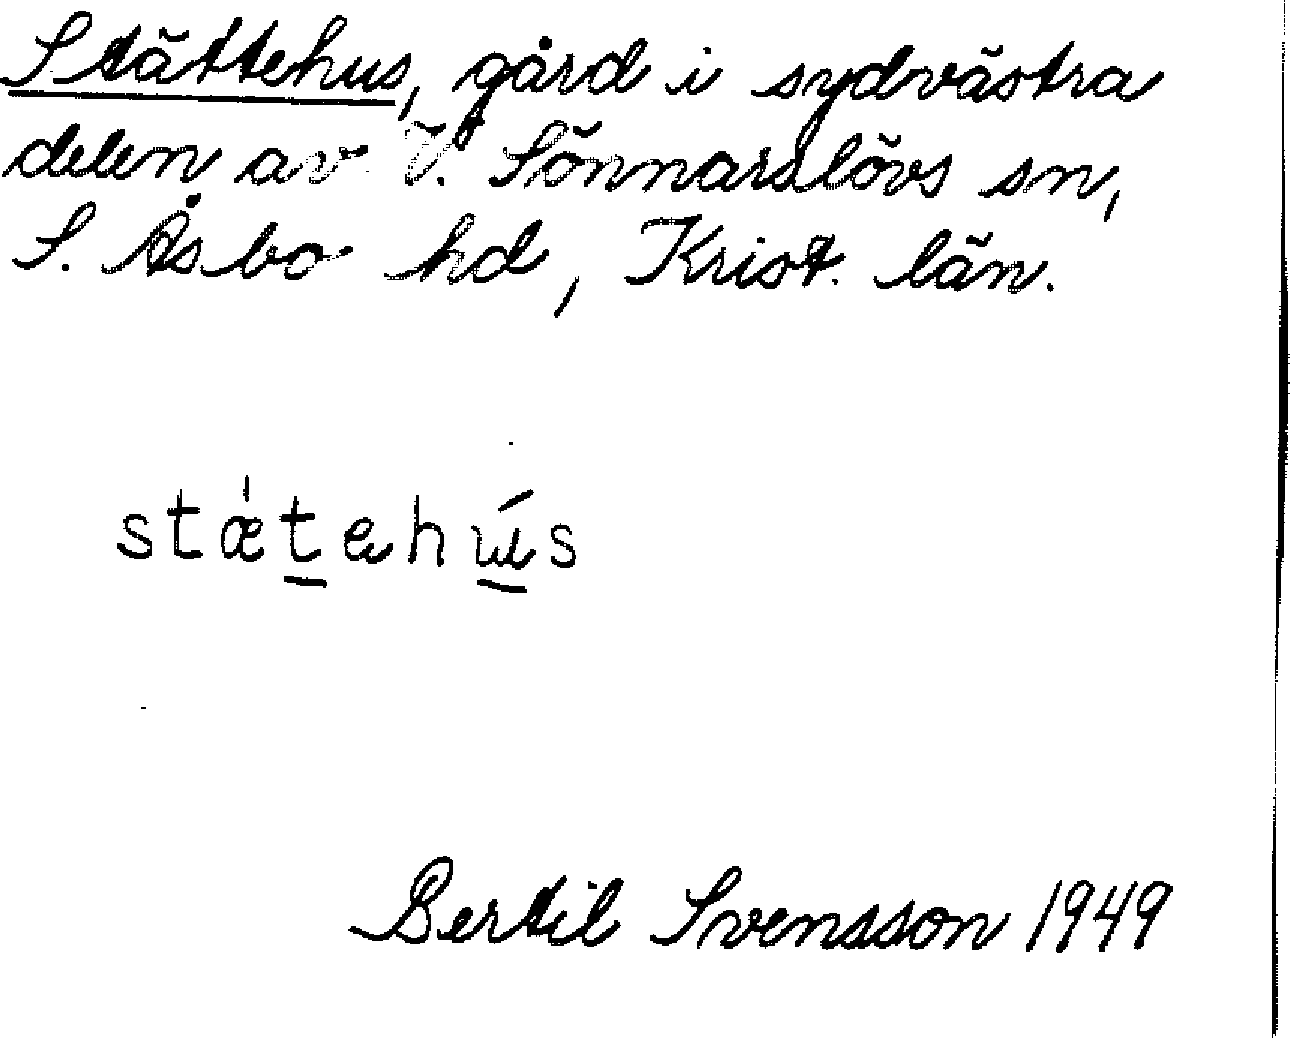 Stättehus, gård i sydvästra
delen av V. Sönnarslövs sn,
S. Åsbo hd, Krist. län.
stǽt̲ehú̲s
Bertil Svensson 1949